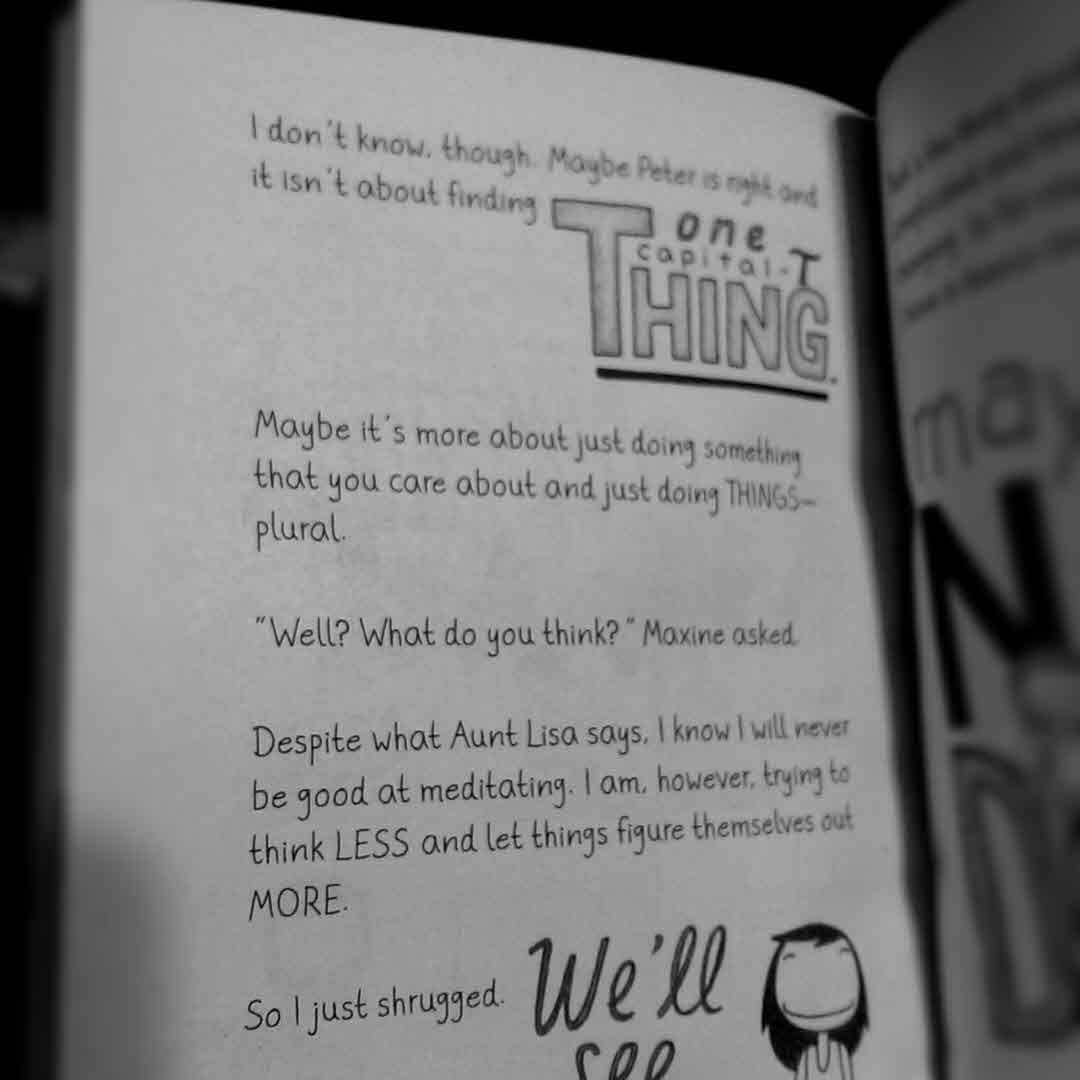 I don't know, though. Maybe Peter is right and
it isn't about finding one
capital-T
THING.
Maybe it's more about just doing something
that you care about and just doing THINGS—
plural.
"Well? What do you think?" Maxine asked.
Despite what Aunt Lisa says, I know I will never
be good at meditating. I am, however, trying to
think LESS and let things figure themselves out
MORE.
So I just shrugged. We'll
see
may
N